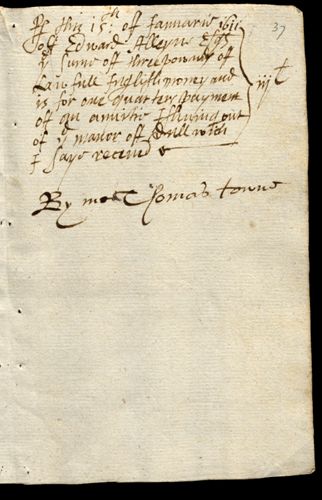 37
R this 15th: of Januarie 1611
off Edward Alleyne Esqr
ye sume off three pounds of
Law full Englishe money and
is for one quarter payment
off an anuitie Issuing out
of ye manor off Dull wich
I saye receivd
iij l
By me Thomas towne